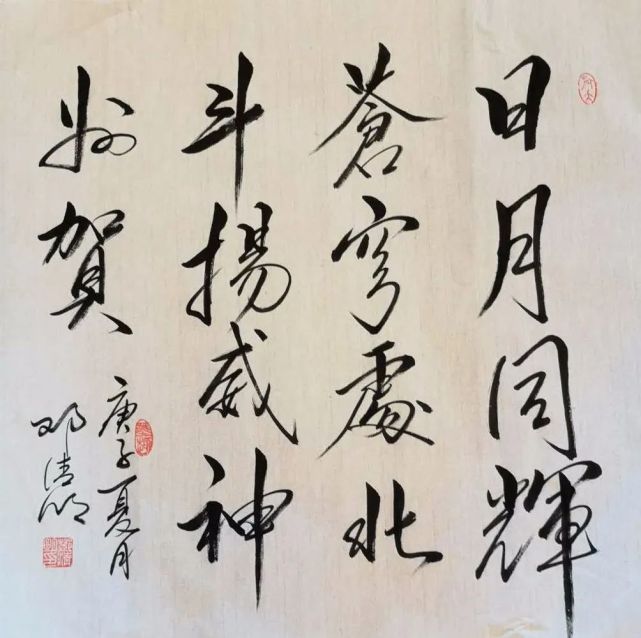 日月同輝
蒼穹處北
斗揚威神
州賀
庚子夏月
邓清明